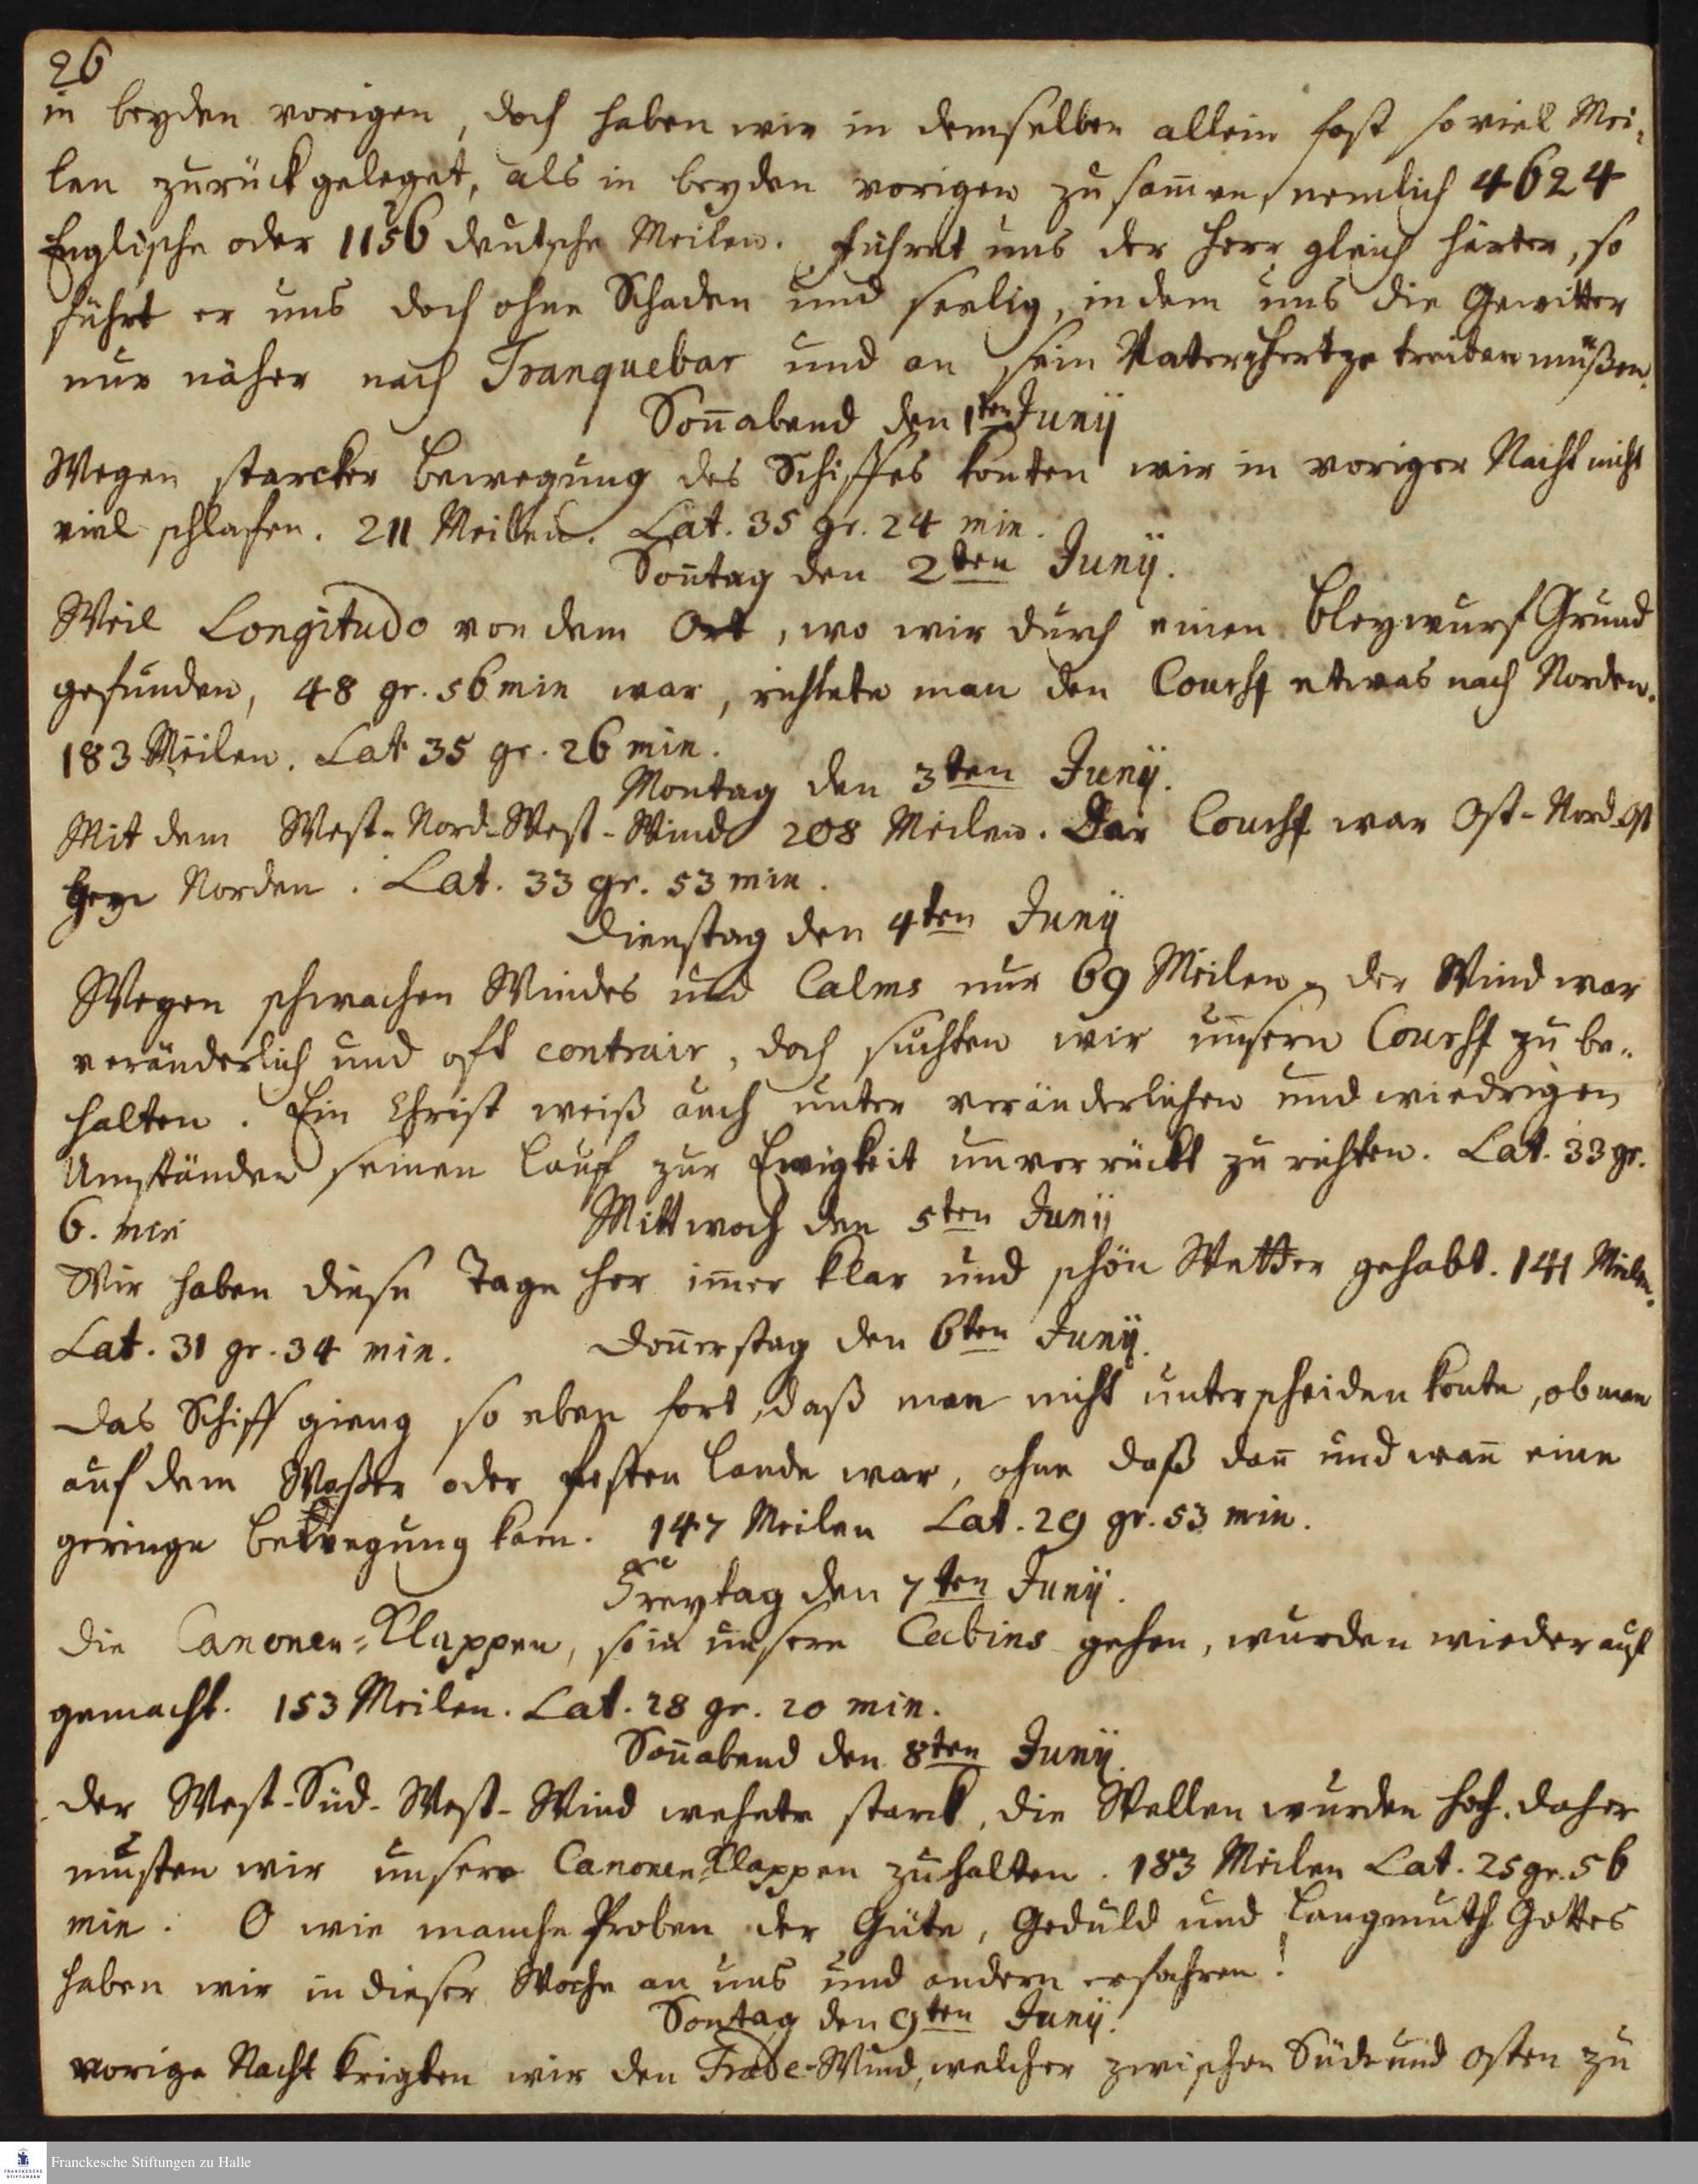 26
in beyden vorigen, doch haben wir in demselben allein fast so viel Mei-
len zurückgeleget, als in beyden vorigen zusam̄en, nemlich 4624
Englische oder 1156 deutsche Meilen. Führet uns der Herr gleich härter, so
führt er uns doch ohne Schaden und seelig, indem uns die Gewitter
nur näher nach Tranquebar und an sein Vaterhertze treiben müßen.
Son̄abend den 1ten Junÿ
Wegen starcker Bewegung des Schiffes konten wir in voriger Nacht nicht
viel schlafen. 211 Meilen. Lat. 35 gr. 24 min.
Son̄tag den 2ten Junÿ.
Weil Longitudo von dem Ort, wo wir durch einen Bleywurf Grund
gefunden, 48 gr. 56 min war, richtete man den Courss etwas nach Norden.
183 Meilen. Lat 35 gr. 26 min.
Montag den 3ten Junÿ.
Mit dem West-Nord-West-Wind 208 Meilen. Der Courss war Ost-Nord-Ost
gegen Norden. Lat. 33 gr. 53 min.
Dienstag den 4ten Junÿ
Wegen schwachen Windes und Calms nur 69 Meilen, der Wind war
veränderlich und oft contrair, doch suchten wir unsern Courss zu be-
halten. Ein Christ weiß auch unter veränderlichen und wiedrigen
Umständen seinen Lauf zur Ewigkeit unverrückt zu richten. Lat. 33 gr.
6. min
Mittwoch den 5ten Junÿ
Wir haben diese Tage her im̄er klar und schön Wetter gehabt. 141 Meilen.
Lat. 31 gr. 34 min.
Don̄erstag den 6ten Junÿ.
Das Schiff gieng so eben fort, daß man nicht unterscheiden konte, ob man
auf dem Waßer oder festen Lande war, ohne daß dan̄ und wan̄ eine
geringe Bewegung kam. 147 Meilen Lat. 29 gr. 53 min.
Freytag den 7ten Junÿ.
Die Canonen-Klappen, so in unsere Cabins gehen, wurden wieder auf
gemacht. 153 Meilen. Lat. 28 gr. 20 min.
Son̄abend den 8ten Junÿ.
Der West-Süd-West-Wind wehete starck, die Wellen wurden hoch, daher
musten wir unsere Canonen-Klappen zuhalten. 183 Meilen Lat. 25 gr. 56
min. O wie manche Proben der Güte, Geduld und Langmuth Gottes
haben wir in dieser Woche an uns und andern erfahren!
Sontag den 9ten Junÿ.
Vorige Nacht krigten wir den Trade-Wind, welcher zwischen Süde und Osten zu
Franckesche Stiftungen zu Halle
FRANCKESCHE
STIFTUNGEN